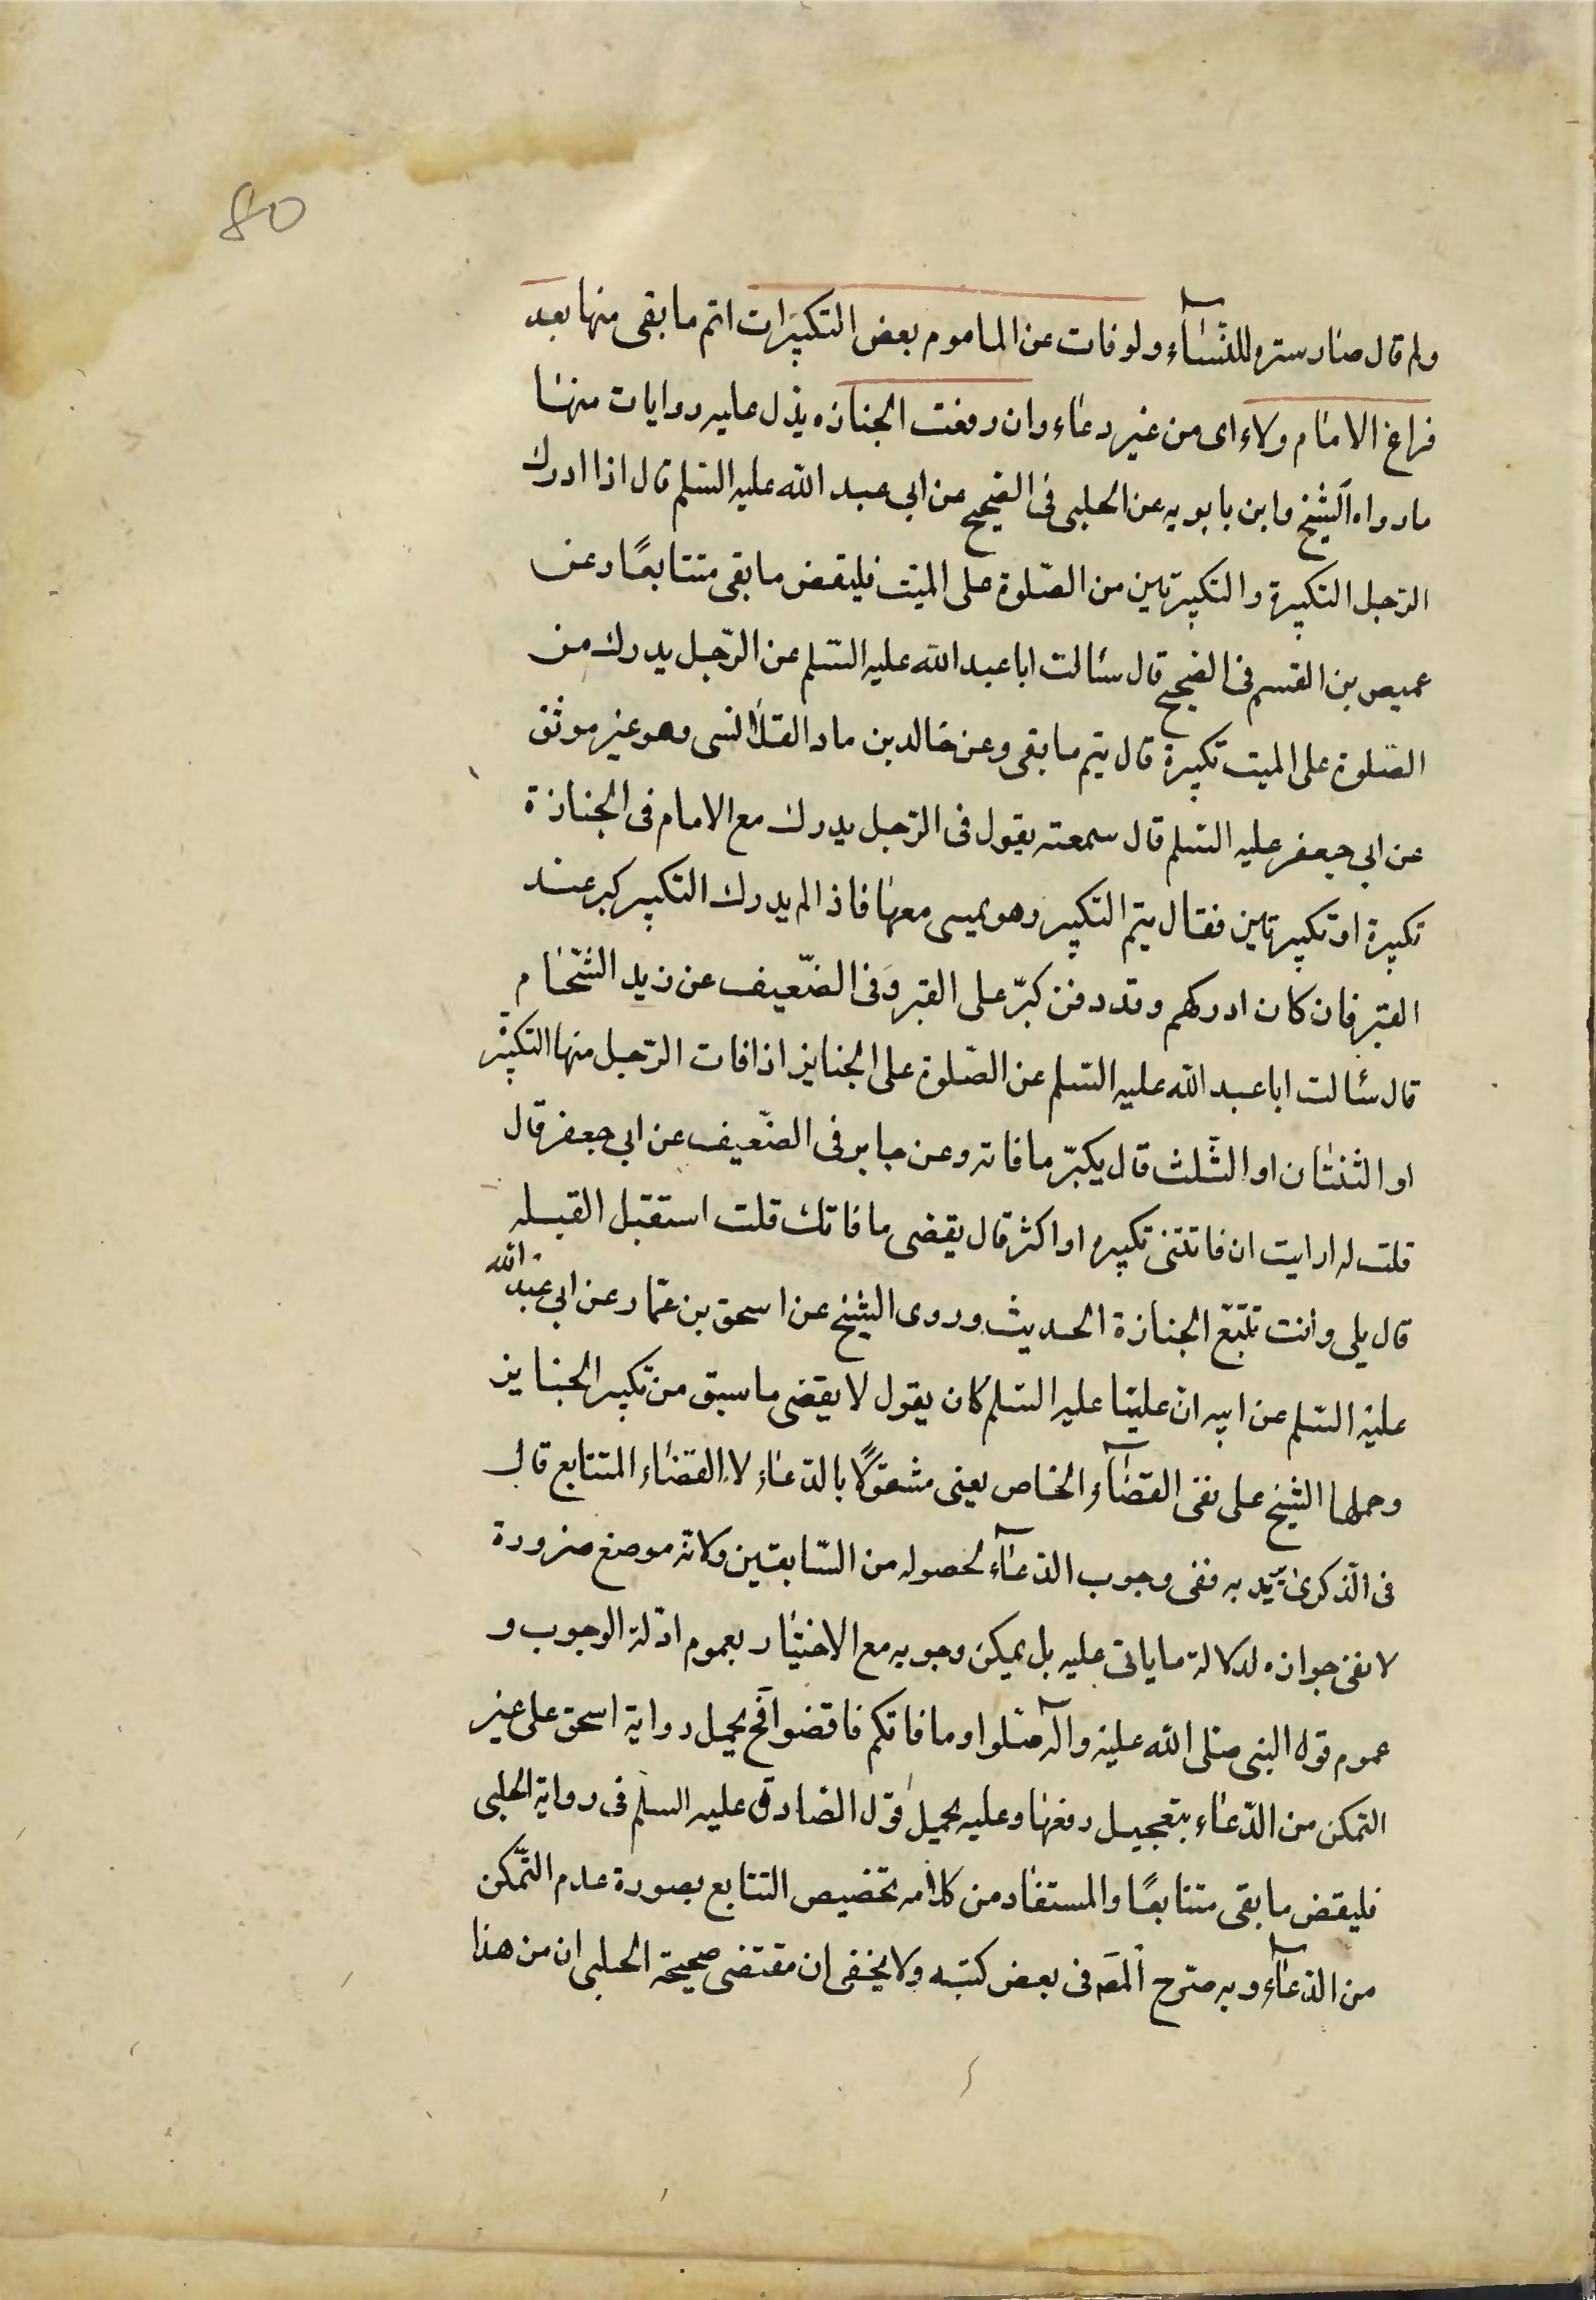 80
ولم قال صار ستره للنساء ولو فات عن الماموم بعض التكبيرات اتم ما بقى منها بعد
فراغ الامام ولاء اى من غير دعاء وان رفعت الجنازه يدل عليه روايات منها
ما رواه الشيخ وابن بابويه عن الحلبى فى الصحيح عن ابى عبد الله عليه السلم قال اذا ادرك
الرجل التكبيرة والتكبيرتين من الصلوة على الميت فليقض ما بقى متتابعًا وعن
عميص بن القسم فى الصحيح قال سئالت ابا عبد الله عليه السلم عن الرجل يدرك من
الصلوة على الميت تكبيرة قال يتم ما بقى وعن خالد بن ماد القلانسى وهو غير موثق
عن ابى جعفر عليه السلم قال سمعته يقول فى الرجل يدرك مع الامام فى الجنازة
تكبيرة او تكبيرتين فقال يتم التكبير وهو يمسى معها فاذ الم يدرك التكبير كبر عند
القبر فان كان ادركهم وقد دفن كبّر على القبر وفى الضعيف عن زيد الشحام
قال سئالت ابا عبد الله عليه السلم عن الصلوة على الجنايز اذا فات الرجل منها التكبير
او الثنتان او الثلث قال يكبّر ما فاته وعن جابر فى الضعيف عن ابى جعفر قال
قلت له ارايت ان فاتتنى تكبيره او اكثر قال يقضى ما فاتك قلت استقبل القبله
قال بلى وانت تتبع الجنازة الحديث وروى الشيخ عن اسحق بن عمار عن ابى عبد الله
عليه السلم عن ابيه ان عليّا عليه السلم كان يقول لا يقضى ما سبق من تكبير الجنايز
وحملها الشيخ على نفى القضاء الخاص يعنى مشفوًلا بالدعاء لا القضاء المتتابع قال
فى الذكرى يريد به ففى وجوب الدعاء لحصوله من السابقين ولانه موضع ضرورة
لا نفى جوازه لدلالة ما ياتى عليه بل يمكن وجوبه مع الاختيار بعموم ادلة الوجوب و
عموم قول النبى صلى الله عليه وآله صلوا وما فاتكم فاقضوا فح يحمل رواية اسحق على غير
التمكن من الدعاء بتعجيل رفعها وعليه يحمل قول الصادق عليه السلم فى رواية الحلبى
فليقض ما بقى متتابعًا والمستفاد من كلامه تخصيص التتابع بصورة عدم التمكن
من الدعاء وبه صرح المصَ فى بعض كتبه ولا يخفى ان مقتضى صحيحة الحلبى ان من هذا